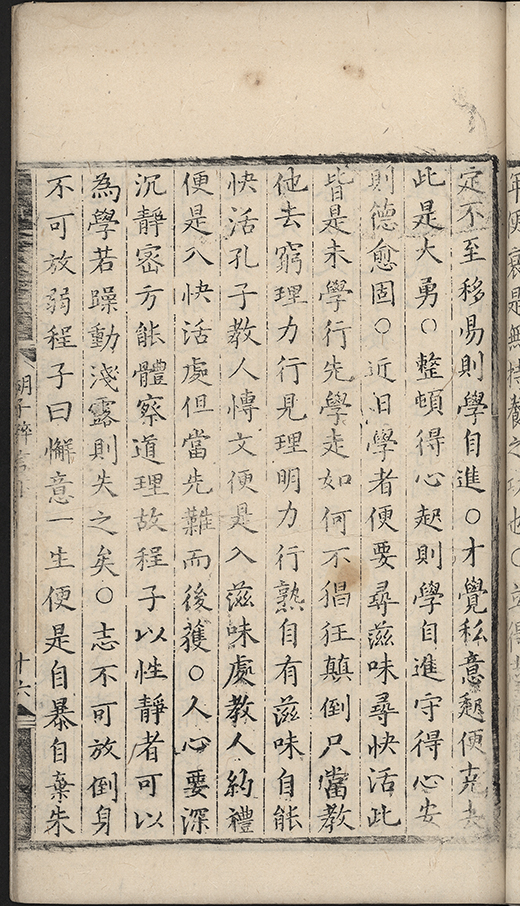 年則衰是無持養之功也〇並
定不至移易則學自進〇才覺私意起便克去
此是大勇〇整頓得心起則學自進守得心安
則德愈固〇近日學者便要尋滋味尋快活此
皆是未學行先學走如何不猖狂顛倒只當教
他去窮理力行見理明力行熟自有滋味自能
快活孔子教人愽文便是入滋味處教人約禮
便是入快活處但當先難而後獲〇人心要深
沉靜密方能體察道理故程子以性靜者可以
為學若躁動淺露則失之矣〇志不可放倒身
不可放弱程子曰懈意一生便是自暴自棄朱
胡子粹言
十六